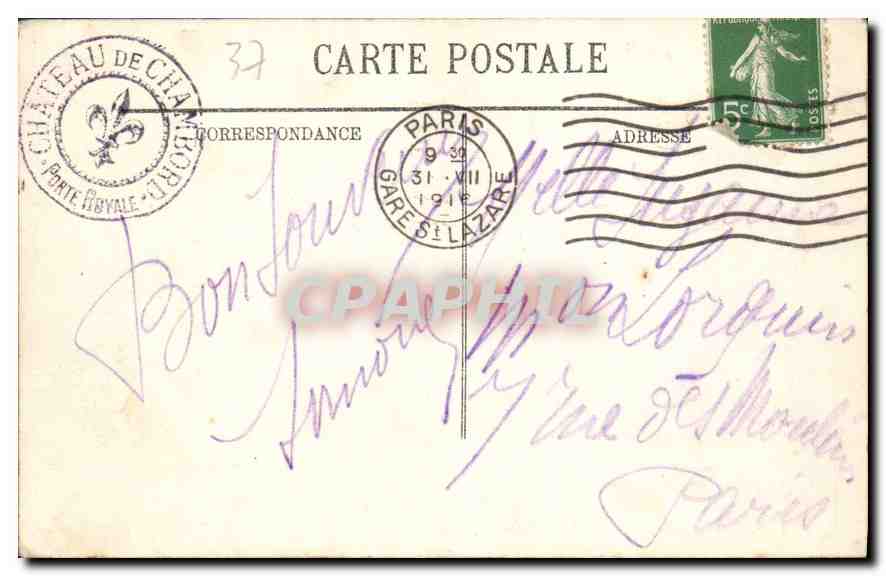 CHATEAU DE CHAMBORD
PORTE ROYALE
37
CARTE POSTALE
CORRESPONDANCE
ADRESSE
PARIS
9 30
31 · VII
1916
GARE St LAZARE
5c
POSTES
Bon Souvenir
Simone
Melle
Mon Lorquin
7 rue des Moulins
Paris
CPAPHIL